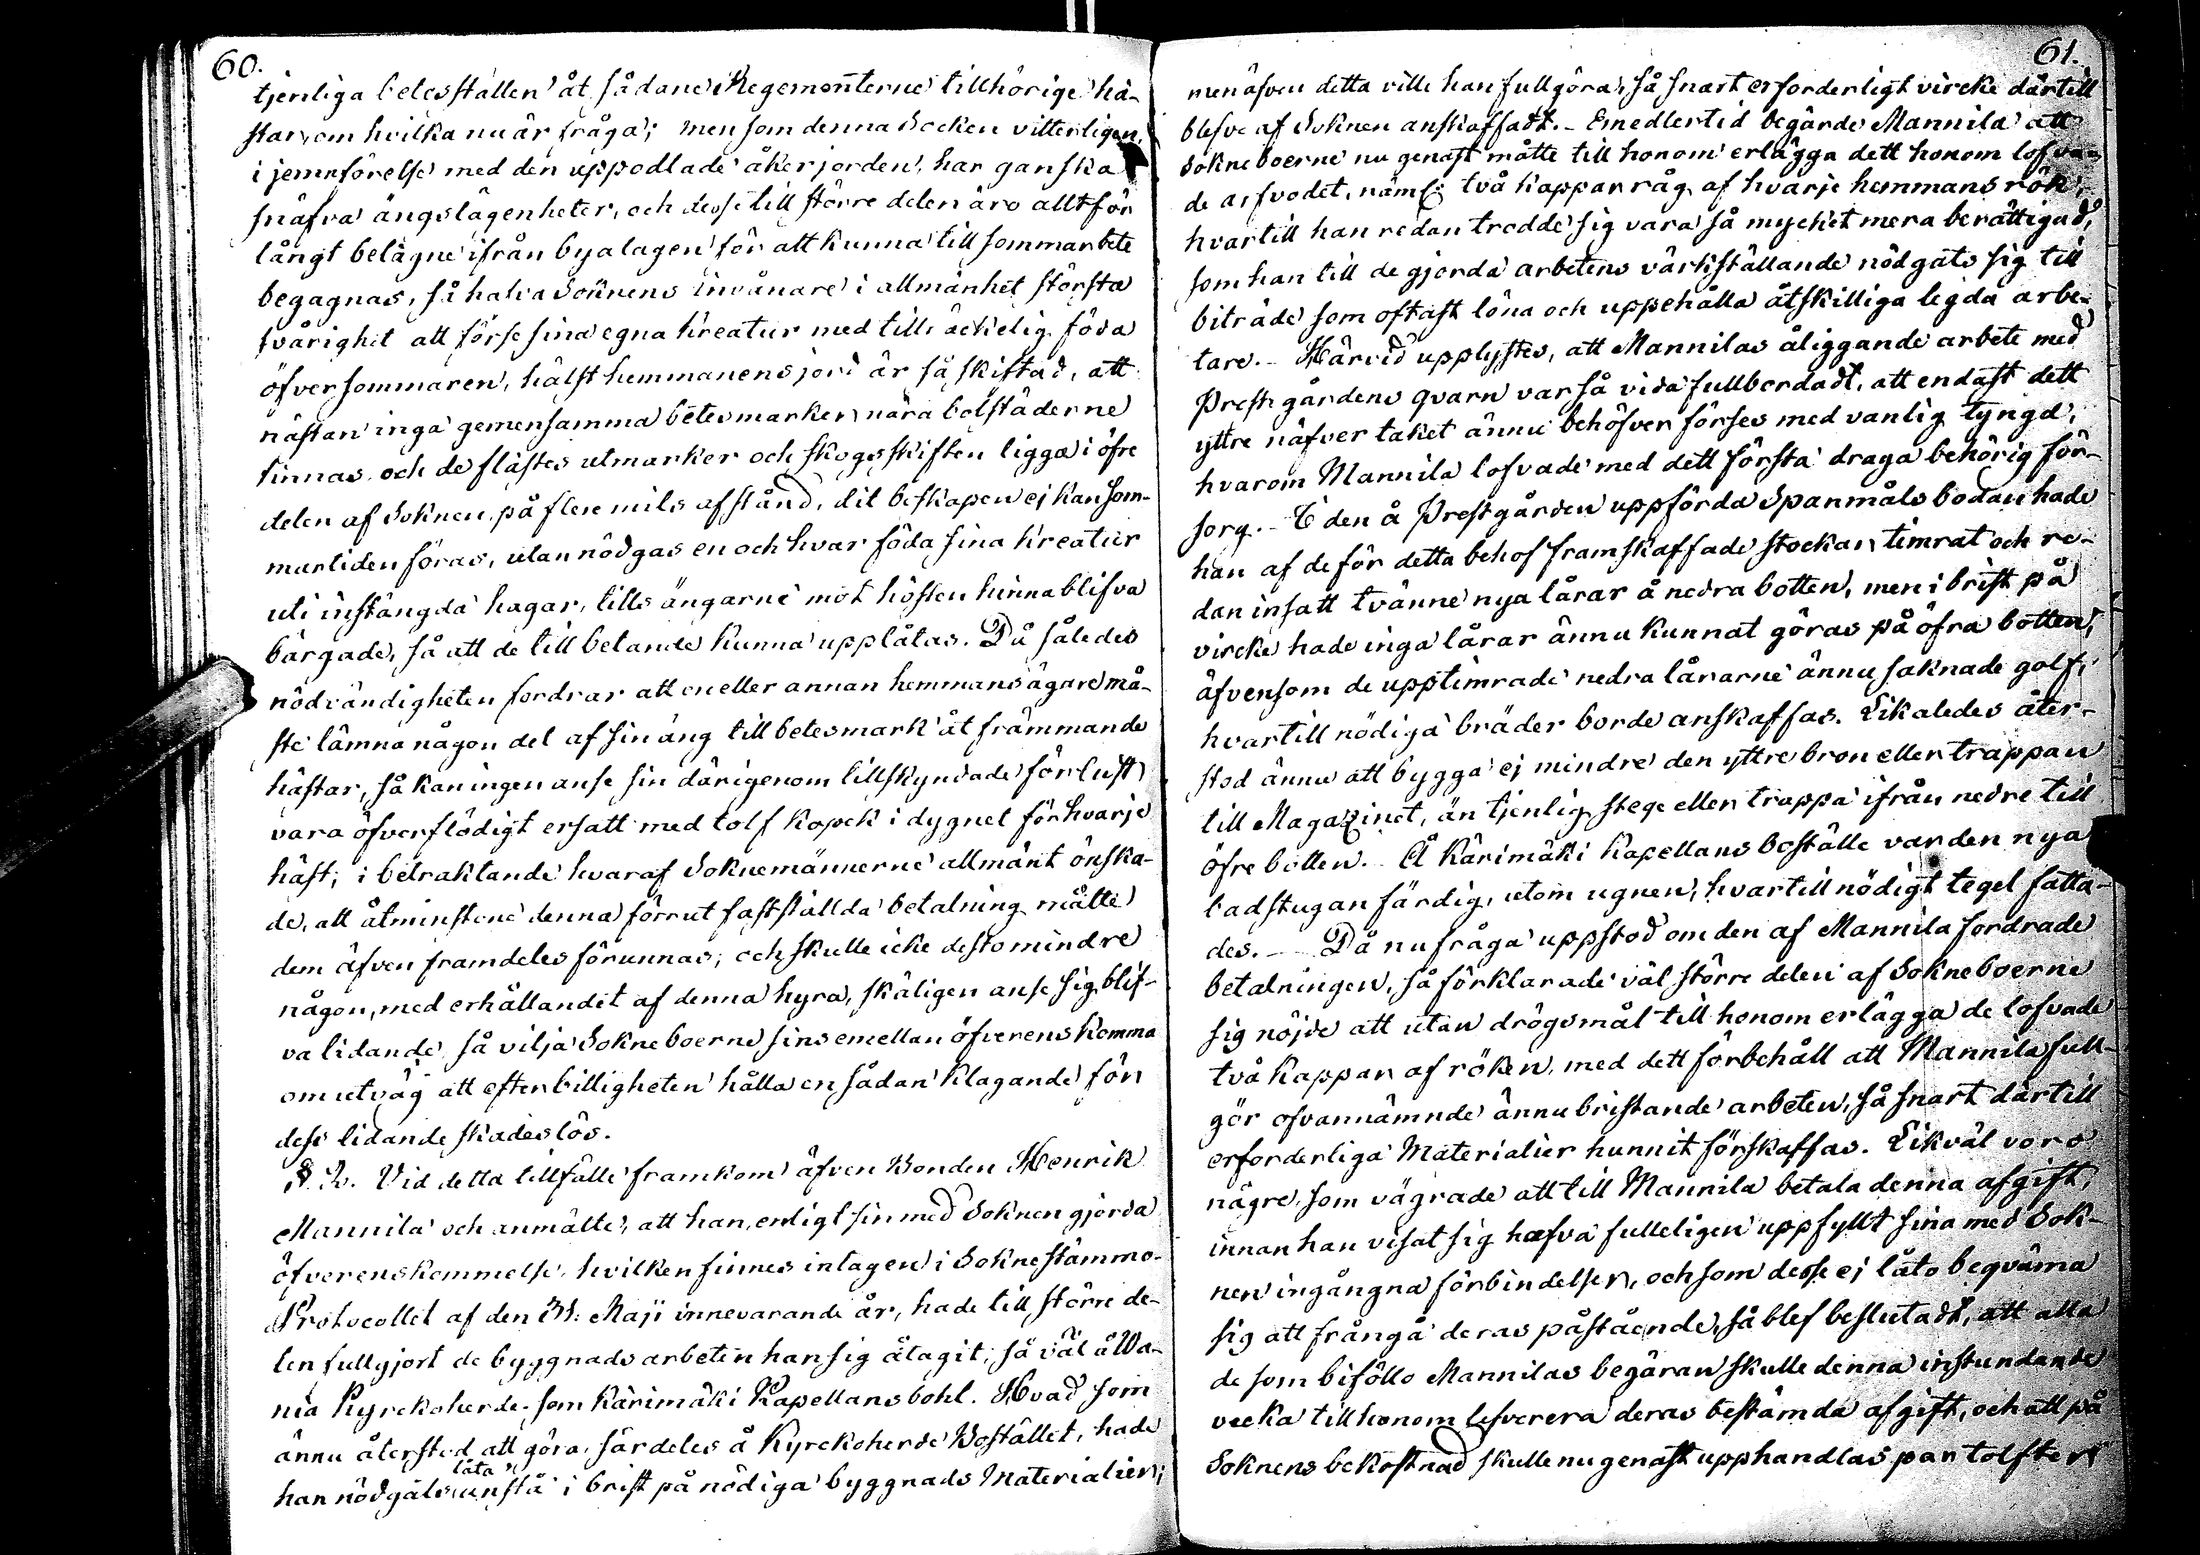 60.
tjenliga betesställen åt sådane Regementerne tillhörige hä-
star, om hvilka nu är fråga; men som denna Socken vitterligen,
i jemnförelse med den uppodlade åkerjorden, har ganska
snäfva ängslägenheter, och desse till större delen äro alltför
långt belägne ifrån byalagen för att kunna till sommarbete
begagnas, så hafva Soknens invånare i allmänhet största
svårighet att förse sina egna kreatur med tillräckelig föda
öfver sommaren, hälst hemmanens jord är så skiftad, att
nästan inga gemensamma betesmarker nära bolstäderne
finnas, och de fläste utmarker och skogsskiften ligga i öfre
delen af Soknen, på flere mils afstånd, dit boskapen ej kan som-
martiden föras, utan nödgas en och hvar föda sina kreatur
uti instängda hagar, tills ängarne mot hösten hinna blifva
bärgade, så att de till betande kunna upplåtas. Då således
nödvändigheten fordrar att en eller annan hemmansägare må-
ste lämna någon del af sin äng till betesmark åt främmande
hästar, så kan ingen anse sin därigenom tillskyndade förlust
vara öfverflödigt ersatt med tolf kopek i dygnet för hvarje
häst; i betraktande hvaraf Soknemännerne allmänt önska-
de, att åtminstone denna förrut fastställda betalning måtte
dem äfven framdeles förunnas; och skulle icke desto mindre
någon, med erhållandet af denna hyra, skäligen anse sig blif-
va lidande, så vilja Sokneboerne sins emellan öfverenskomma
om utväg att efter billigheten hålla en sådan klagande för
dess lidande skadeslös.
§ 2. Vid detta tillfälle framkom äfven Bonden Henrik
Mannila och anmälte, att han, enligt sin med Soknen gjorda
öfverenskommelse, hvilken finnes intagen i Soknestämmo-
Protocollet af den 31. Maji innevarande år, hade till större de-
len fullgjort de byggnads arbeten han sig åtagit, så väl å Wa-
nia Kyrckoherde- som Kärimäki Kapellansbohl. Hvad som
ännu återstod att göra, särdeles å Kyrckoherde Bostället, hade
han nödgats låta anstå i brist på nödiga byggnads Materialier;
61.
men äfven detta ville han fullgöra, så snart erforderligt vircke därtill
blefve af Soknen anskaffadt. - Emedlertid begärde Mannila att
Sokneboerne nu genast måtte till honom erlägga dett honom lofva-
de arfvodet, näml: två kappar råg af hvarje hemmans rök,
hvartill han redan trodde sig vara så mycket mera berättigad,
som han till de gjorda arbetens värkställande nödgats sig till
biträde som oftast löna och uppehålla åtskilliga legda arbe-
tare. - Härvid upplystes, att Mannilas åliggande arbete med
Prestegårdens qvarn var så vida fullbordadt, att endast dett
yttre näfver taket ännu behöfver förses med vanlig tyngd,
hvarom Mannila lofvade med dett första draga behörig för-
sorg. - I den å Prestgården uppförda Spanmåls bodan hade
han af de för detta behof framskaffade stockar timrat och re-
dan insatt tvänne nya lårar å nedra botten, men i brist på
vircke hade inga lårar ännu kunnat göras på öfra botten,
äfvensom de upptimrade nedra lårarne ännu saknade golf,
hvartill nödiga bräder borde anskaffas. Likaledes åter-
stod ännu att bygga ej mindre den yttre bron eller trappan
till Magazinet, än tjenlig stege eller trappa ifrån nedre till
öfre botten. - Å Kärimäki Kapellans boställe var den nya
badstugan färdig, utom ugnen, hvartill nödigt tegel fatta-
des. - Då nu fråga uppstod om den af Mannila fordrade
betalningen, så förklarade väl större delen af Sokneboerne
sig nöjde att utan drögsmål till honom erlägga de lofvade
två kappar af röken, med dett förbehåll att Mannila full-
gör ofvannämnde ännu bristande arbeten, så snart därtill
erforderliga Materialier hunnit förskaffas. Likväl voro
någre, som vägrade att till Mannila betala denna afgift,
innan han visat sig hafva fulleligen uppfyllt sina med Sok-
nen ingångna förbindelser, och som desse ej läto beqväma
sig att frångå deras påstående, så blef beslutadt, att alla
de som biföllo Mannilas begäran skulle denna instundande
vecka till honom lefverera deras bestämda afgift, och att på
Soknens bekostnad skulle nu genast upphandlas par tolfter